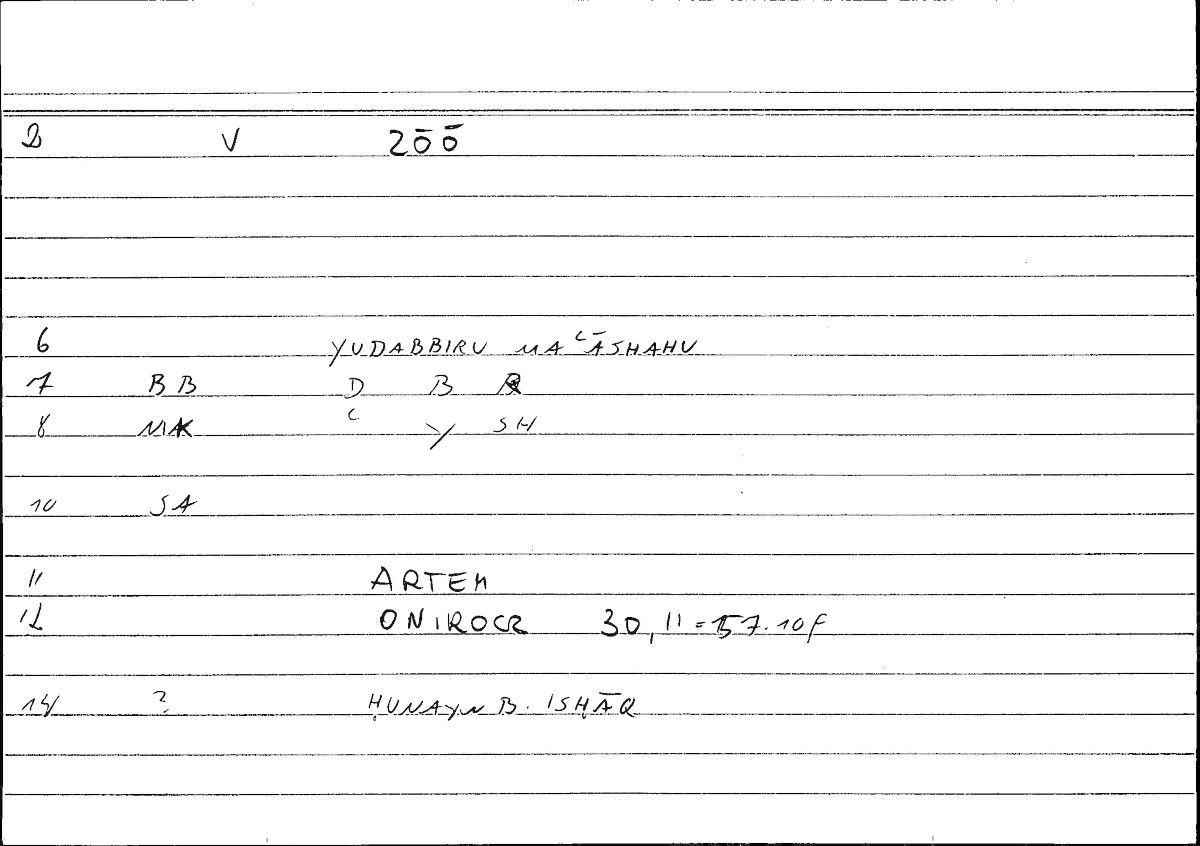 2 V 2ōō
6 YUDABBIRU MAʿĀSHAHU
7 BB D B R
8 MK ʿ Y SH
10 SA
11 ARTEM
12 ONIROCR 30,11 = 57.10f
14 ? ḤUNAYN B. ISḤĀQ